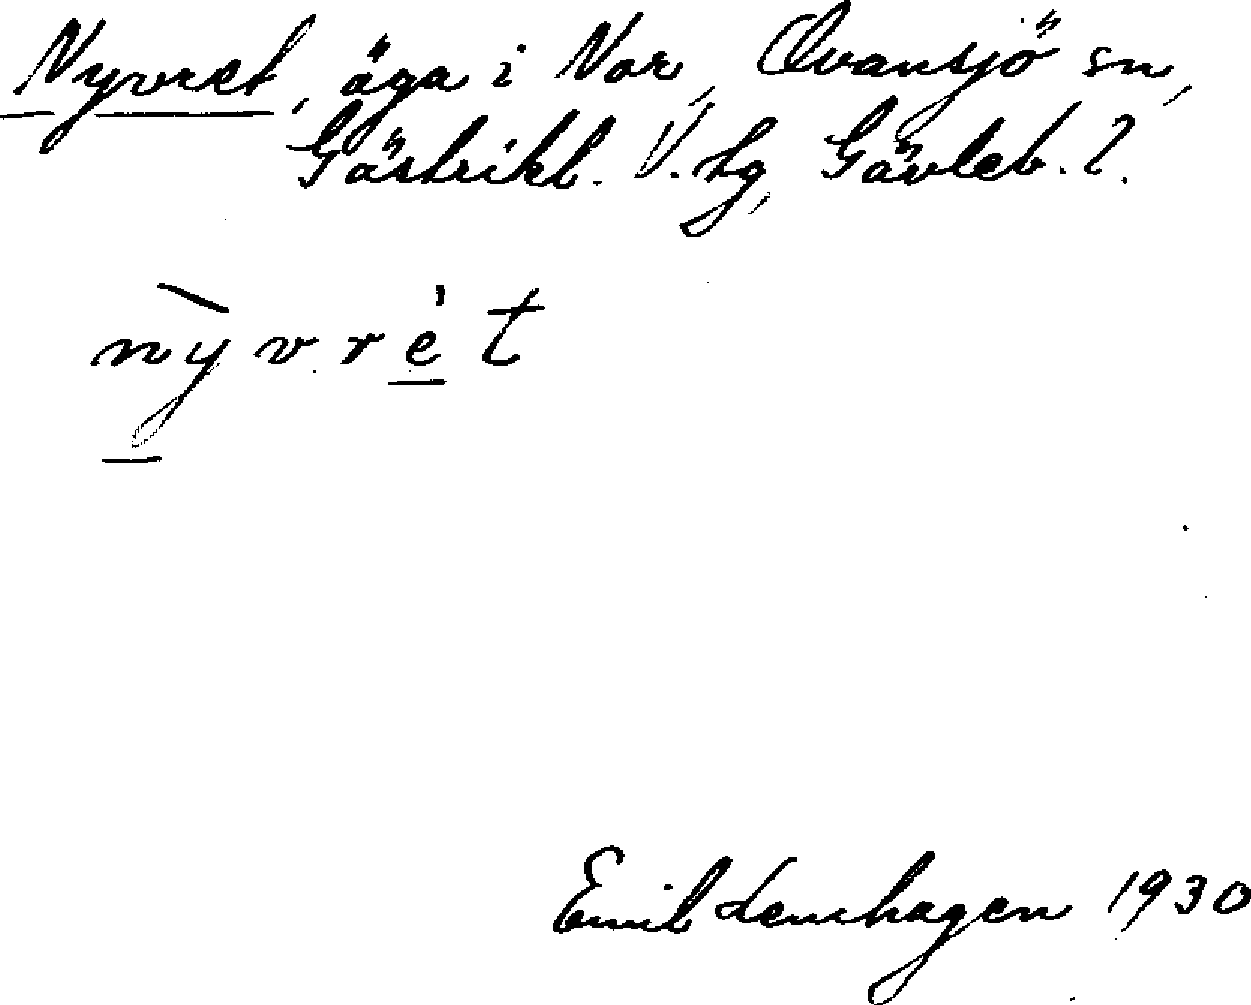 Nyvret, äga i Nor, Ovansjö sn,
Gästrikl. V. tg, Gävleb. l.
nỳvrét
Emil Lenhagen 1930